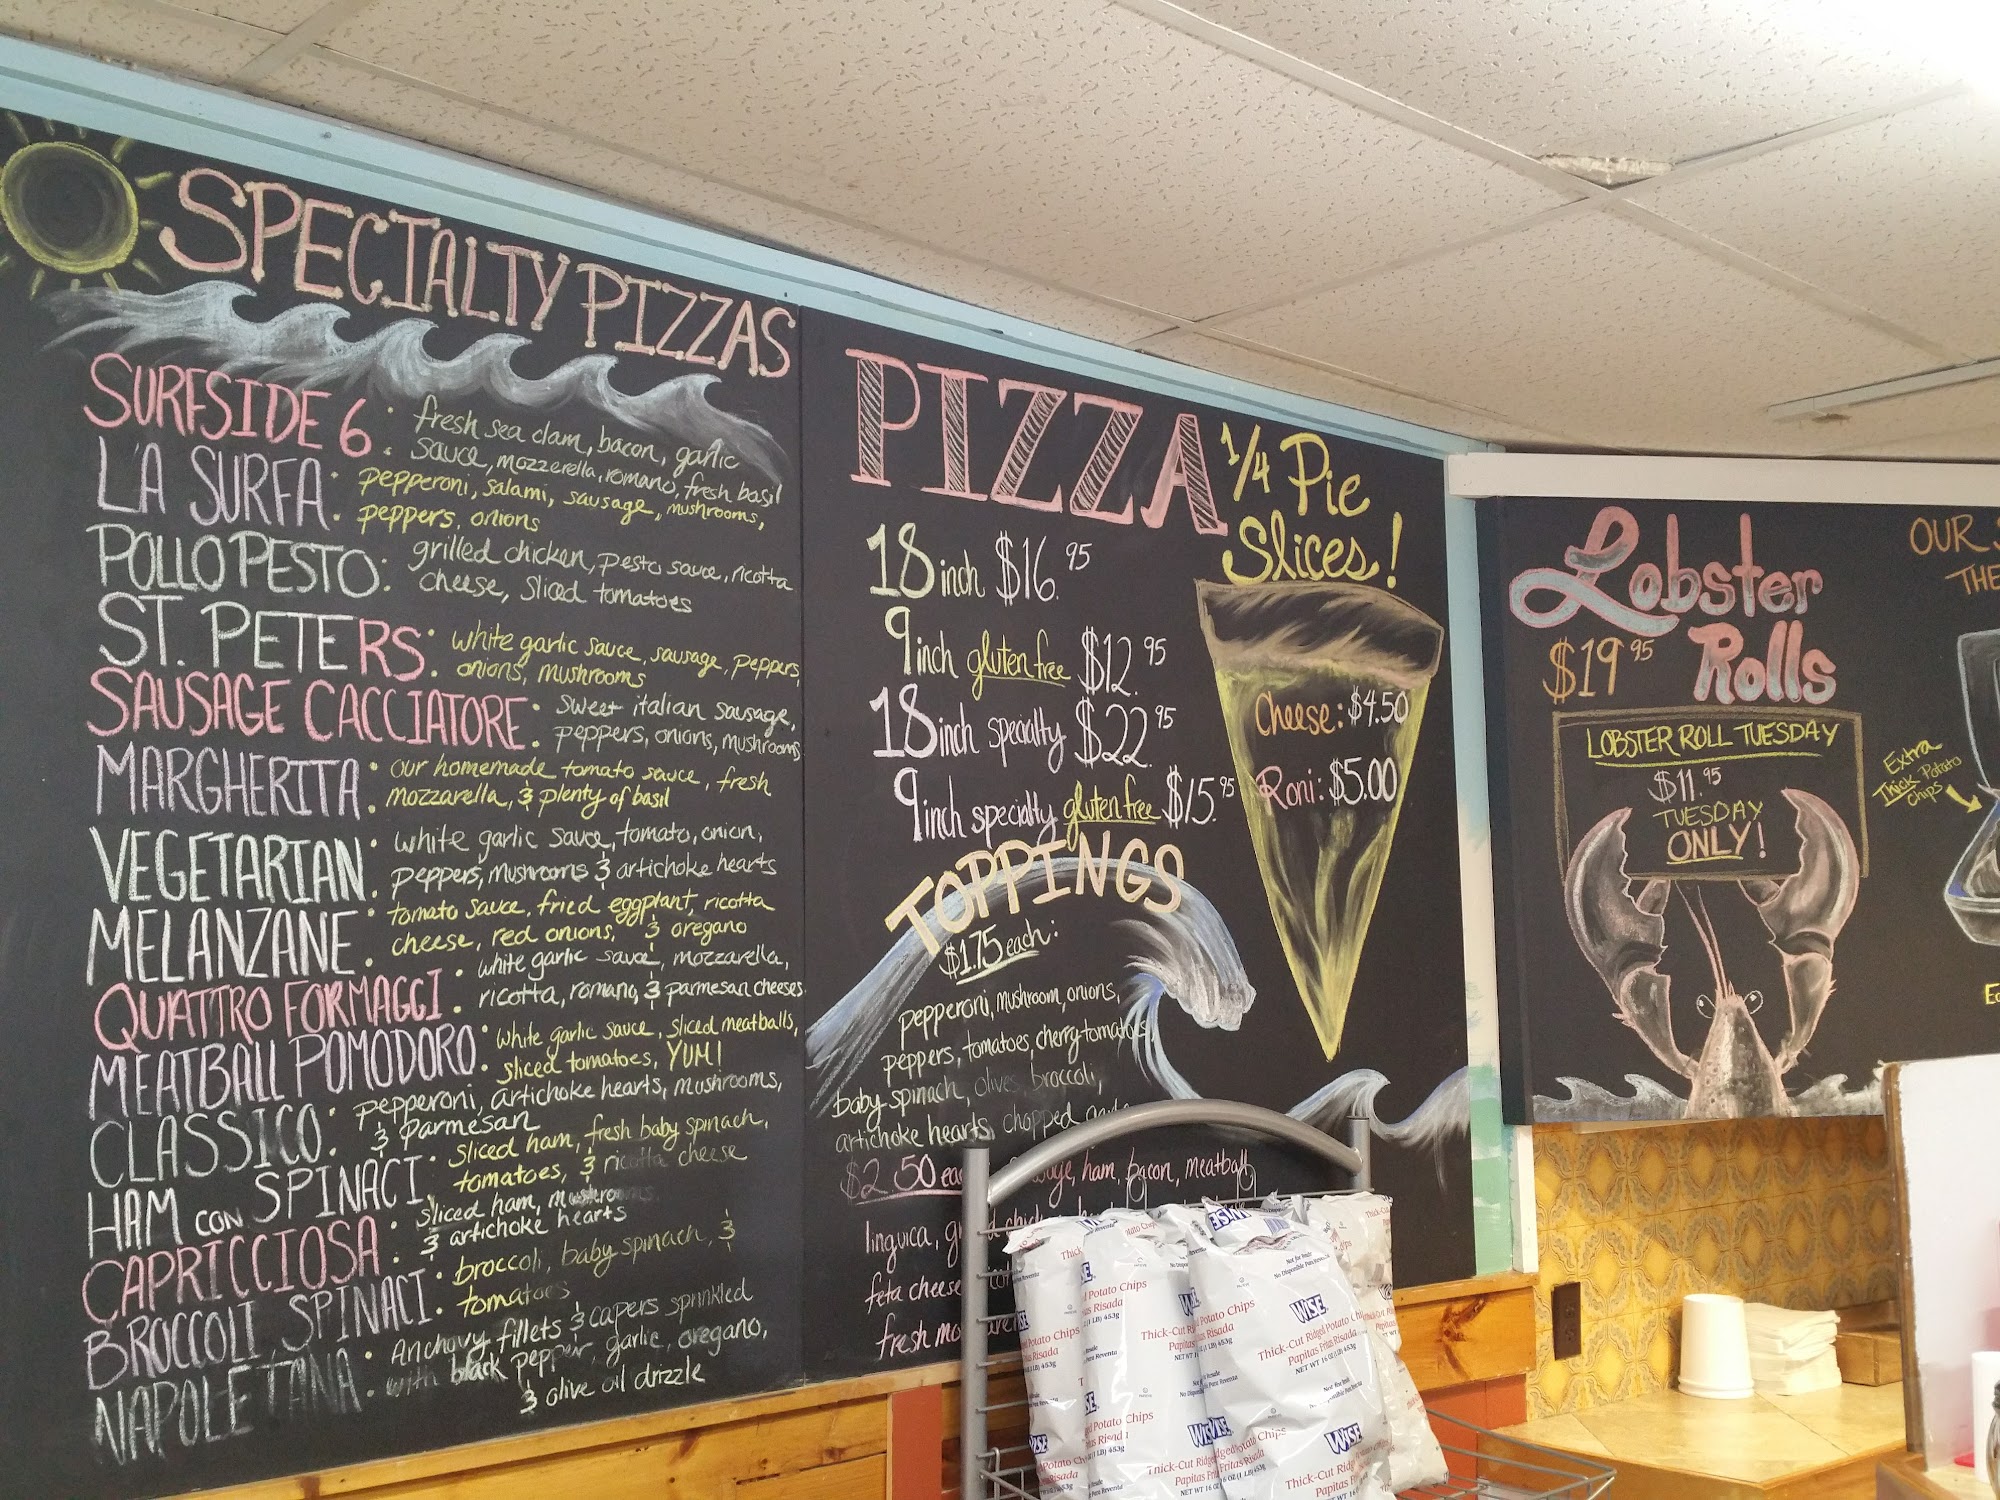 SPECIALTY PIZZAS
SURFSIDE 6: fresh sea clam, bacon, garlic
sauce, mozzerella, romano, fresh basil
L'A SURFA: pepperoni, salami, sausage, mushrooms,
peppers, onions
POLLO PESTO: grilled chicken, pesto sauce, ricotta
cheese, sliced tomatoes
ST. PETERS: white garlic sauce, sausage, peppers,
onions, mushrooms
SAUSAGE CACCIATORE: sweet italian sausage,
peppers, onions, mushrooms
MARGHERITA: our homemade tomato sauce, fresh
mozzarella, & plenty of basil
VEGETARIAN: white garlic sauce, tomato, onion,
peppers, mushrooms & artichoke hearts
MELANZANE: tomato sauce, fried eggplant, ricotta
cheese, red onions, & oregano
QUATTRO FORMAGGI: white garlic sauce, mozzarella,
ricotta, romano, & parmesan cheeses
MEATBALL POMODORO: white garlic sauce, sliced meatballs,
sliced tomatoes, YUM!
CLASSICO: pepperoni, artichoke hearts, mushrooms,
& parmesan
HAM CON SPINACI: sliced ham, fresh baby spinach,
tomatoes, & ricotta cheese
CAPRICCIOSA: sliced ham, mushrooms,
& artichoke hearts
BROCCOLI SPINACI: broccoli, baby spinach, &
tomatoes
NAPOLETANA: Anchovy fillets & capers sprinkled
with black pepper, garlic, oregano,
& olive oil drizzle
PIZZA
18 inch $16.95
9 inch gluten free $12.95
18 inch specialty $22.95
9 inch specialty gluten free $15.95
1/4 Pie
Slices!
Cheese: $4.50
Roni: $5.00
TOPPINGS
$1.75 each:
pepperoni, mushroom, onions,
peppers, tomatoes, cherry tomatoes,
baby spinach, olives, broccoli,
artichoke hearts, chopped
$2.50 ham, bacon, meatball
linguica,
feta cheese
fresh
Lobster
Rolls
$19.95
LOBSTER ROLL TUESDAY
$11.95
TUESDAY
ONLY!
OUR
THE
Extra
Thick Potato
Chips
WISE
Thick-Cut Ridged Potato Chips
Papitas Fritas Risada
NET WT 16 OZ (1 LB) 453g
Not for Resale
No Disponible Para Reventa